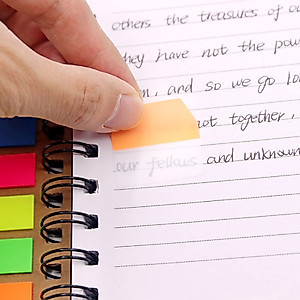 others the treasures of ou
hey have not the pow
n, and so we go lo
not together,
our fellows and unknown